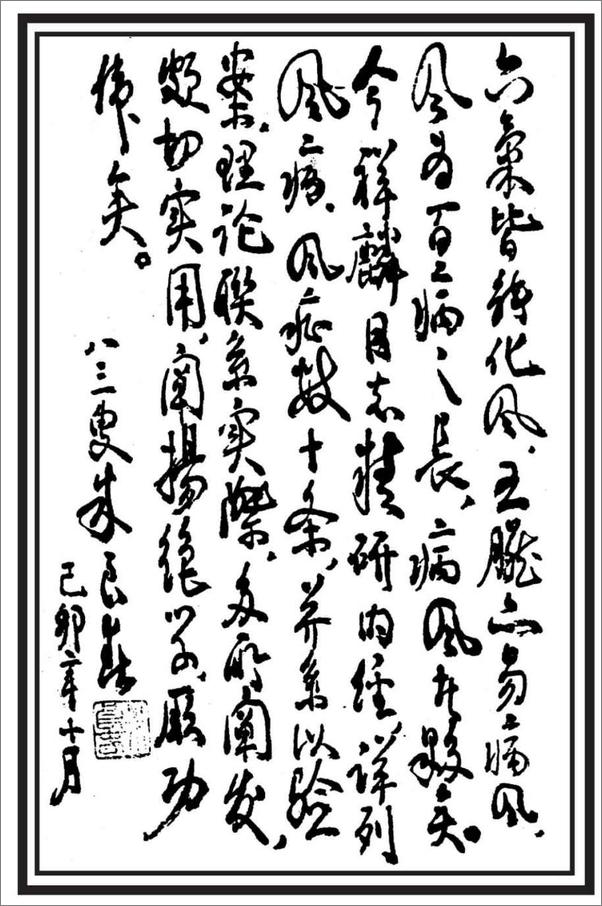 六氣皆能化风、五臟亦易病风、
风为百病之长、病风者夥矣。
今祥麟同志精研内经、详列
风病、风症数十条、并系以验
案、理论联系实际、多所阐发、
颇切实用、阐揚绝学、厥功
伟矣。
八三叟朱良春
己卯年十月